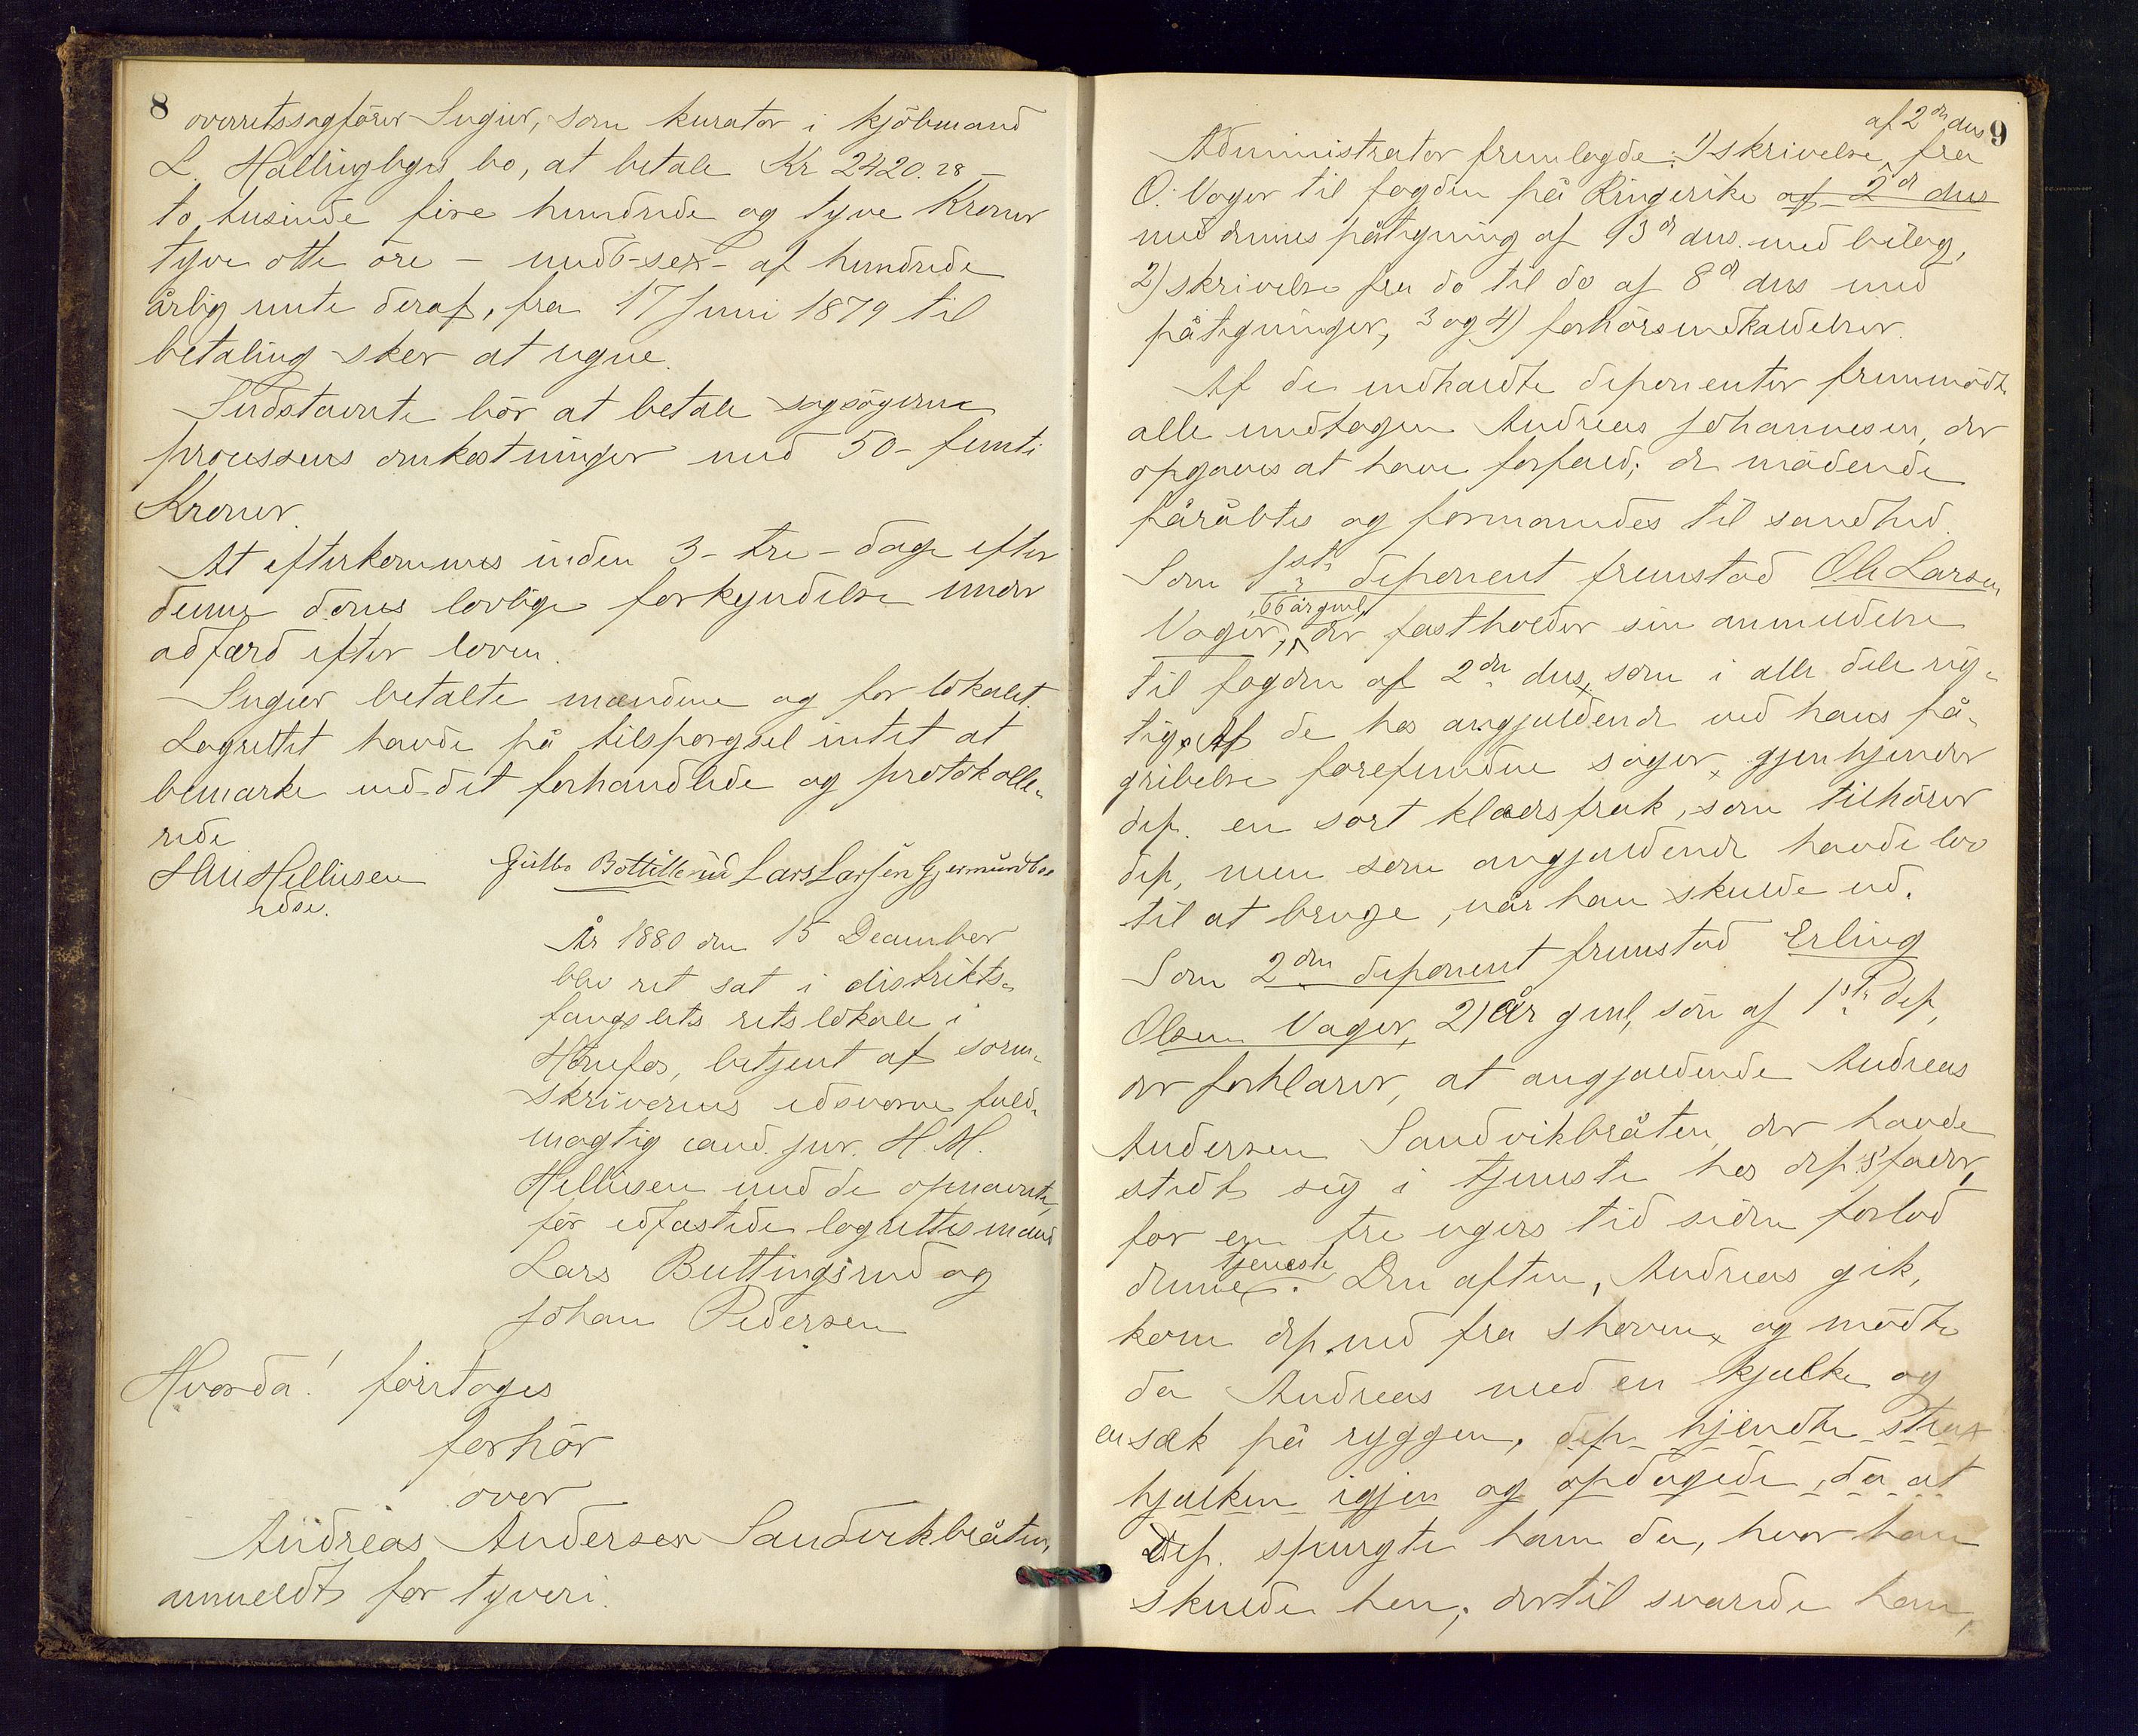 8
overretssagfører Sugier, som kurator i kjøbmand
L. Hallingbyes bo, at betale Kr 2420.28 –
to tusinde fire hundrede og tyve Kroner
tyve otte öre – med 6 – sex – af hundrede
årlig rente deraf, fra 17 Juni 1879 til
betaling sker at regne.
Indstævnte bör at betale sagsögerne
processens omkostninger med 50 – femti
Kroner.
At efterkommes inden 3 – tre – dage efter
denne doms lovlige forkyndelse under
adfærd efter loven.
Sugier betalte mændene og for lokalet.
Lagrettet havde på tilspørgsel intet at
bemærke ved det forhandlede og protokolle-
rede
HM Hellesen
edsv.
Gulbr Bottillerud Lars Larsen Gjermundbo
År 1880 den 15 December
blev ret sat i distrikts-
fængslets retslokale i
Hönefos, betjent af soren-
skriverens edsvorne fuld-
mægtig cand. jur. H. M.
Hellesen med de opnævnte,
för edfæstede lagrettesmænd
Lars Buttingsrud og
Johan Pedersen
Hvorda! foretoges
forhör
over
Andreas Andersen Sandvikbråten,
anmeldt for tyveri.
9
af 2den dns
Administrator fremlagde: 1) skrivelse fra
O. Vager til fogden på Ringerike af 2d dns
med dennes påtegning af 13d dns. med bilag,
2) skrivelse fra do til do af 8d dns med
påtegninger, 3 og 4) forhörsindkaldelser.
Af de indkaldte deponenter fremmödte
alle undtagen Andreas Johannesen, der
opgaves at have forfald; de mödende
påråbtes og formanedes til sandhed.
Som 1ste deponent fremstod Ole Larsen
66 år gml,
Vager, der fastholder sin anmeldelse
til fogden af 2den dns, som i alle dele rig-
tig. Af de hos angjældende ved hans på-
gribelse forefundne sager gjenkjender
dep. en sort klædersfrak, som tilhörer
dep, men som angjældende havde lov
til at bruge, når han skulde ud.
Som 2den deponent fremstod Erling
Olsen Vager, 21 år gml, sön af 1ste dep,
der forklarer, at angjældende Andreas
Andersen Sandvikbråten, der havde
stedt sig i tjeneste hos dep's fader,
for en tre ugers tid siden forlod
tjeneste
denne. Den aften, Andreas gik,
kom dep. ned fra skoven og mödte
da Andreas med en kjælke og
en sæk på ryggen, dep. kjendte strax
kjælken igjen og opdagede, da at
Dep. spurgte ham da, hvor han
skulde hen; dertil svarede han,